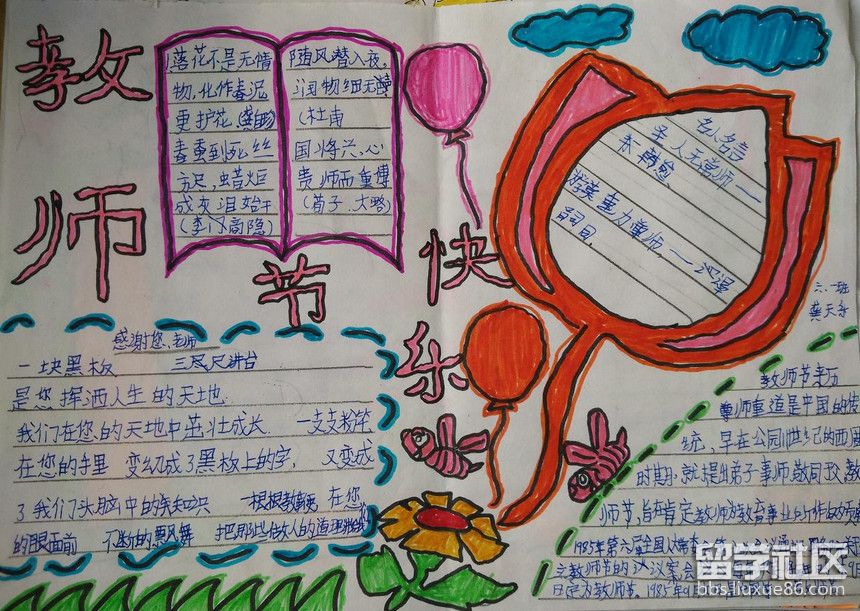 教师节快乐
落花不是无情
物,化作春泥
更护花、(龚自珍)
春蚕到死丝
方尽,蜡炬
成灰泪始干
(李商隐)
随风潜入夜,
润物细无声
(杜甫
国将兴,心
贵师而重傅
(荀子.大略)
名人名言
圣人无常师——
韩愈
尊师——
六.一班
龚天乐
感谢您、老师
一块黑板 三尺讲台
是您挥洒人生的天地
我们在您的天地中茁壮成长 一支支粉笔
在您的手里 变幻成了黑板上的字, 又变成
了我们头脑中的知识 一根根教鞭 在您
的眼面前 不断的飘风舞 把做人的道理
教师节来历
尊师重道是中国的传
统,早在公园前11世纪的西周
时期,就提出弟子事师,敬同于父,教
师节,旨在肯定教师为教育事业所作的贡
1985年第六届全国人
立教师节的议案
日定为教师节.1985年9月
留学社区
bbs.liuxue86.com